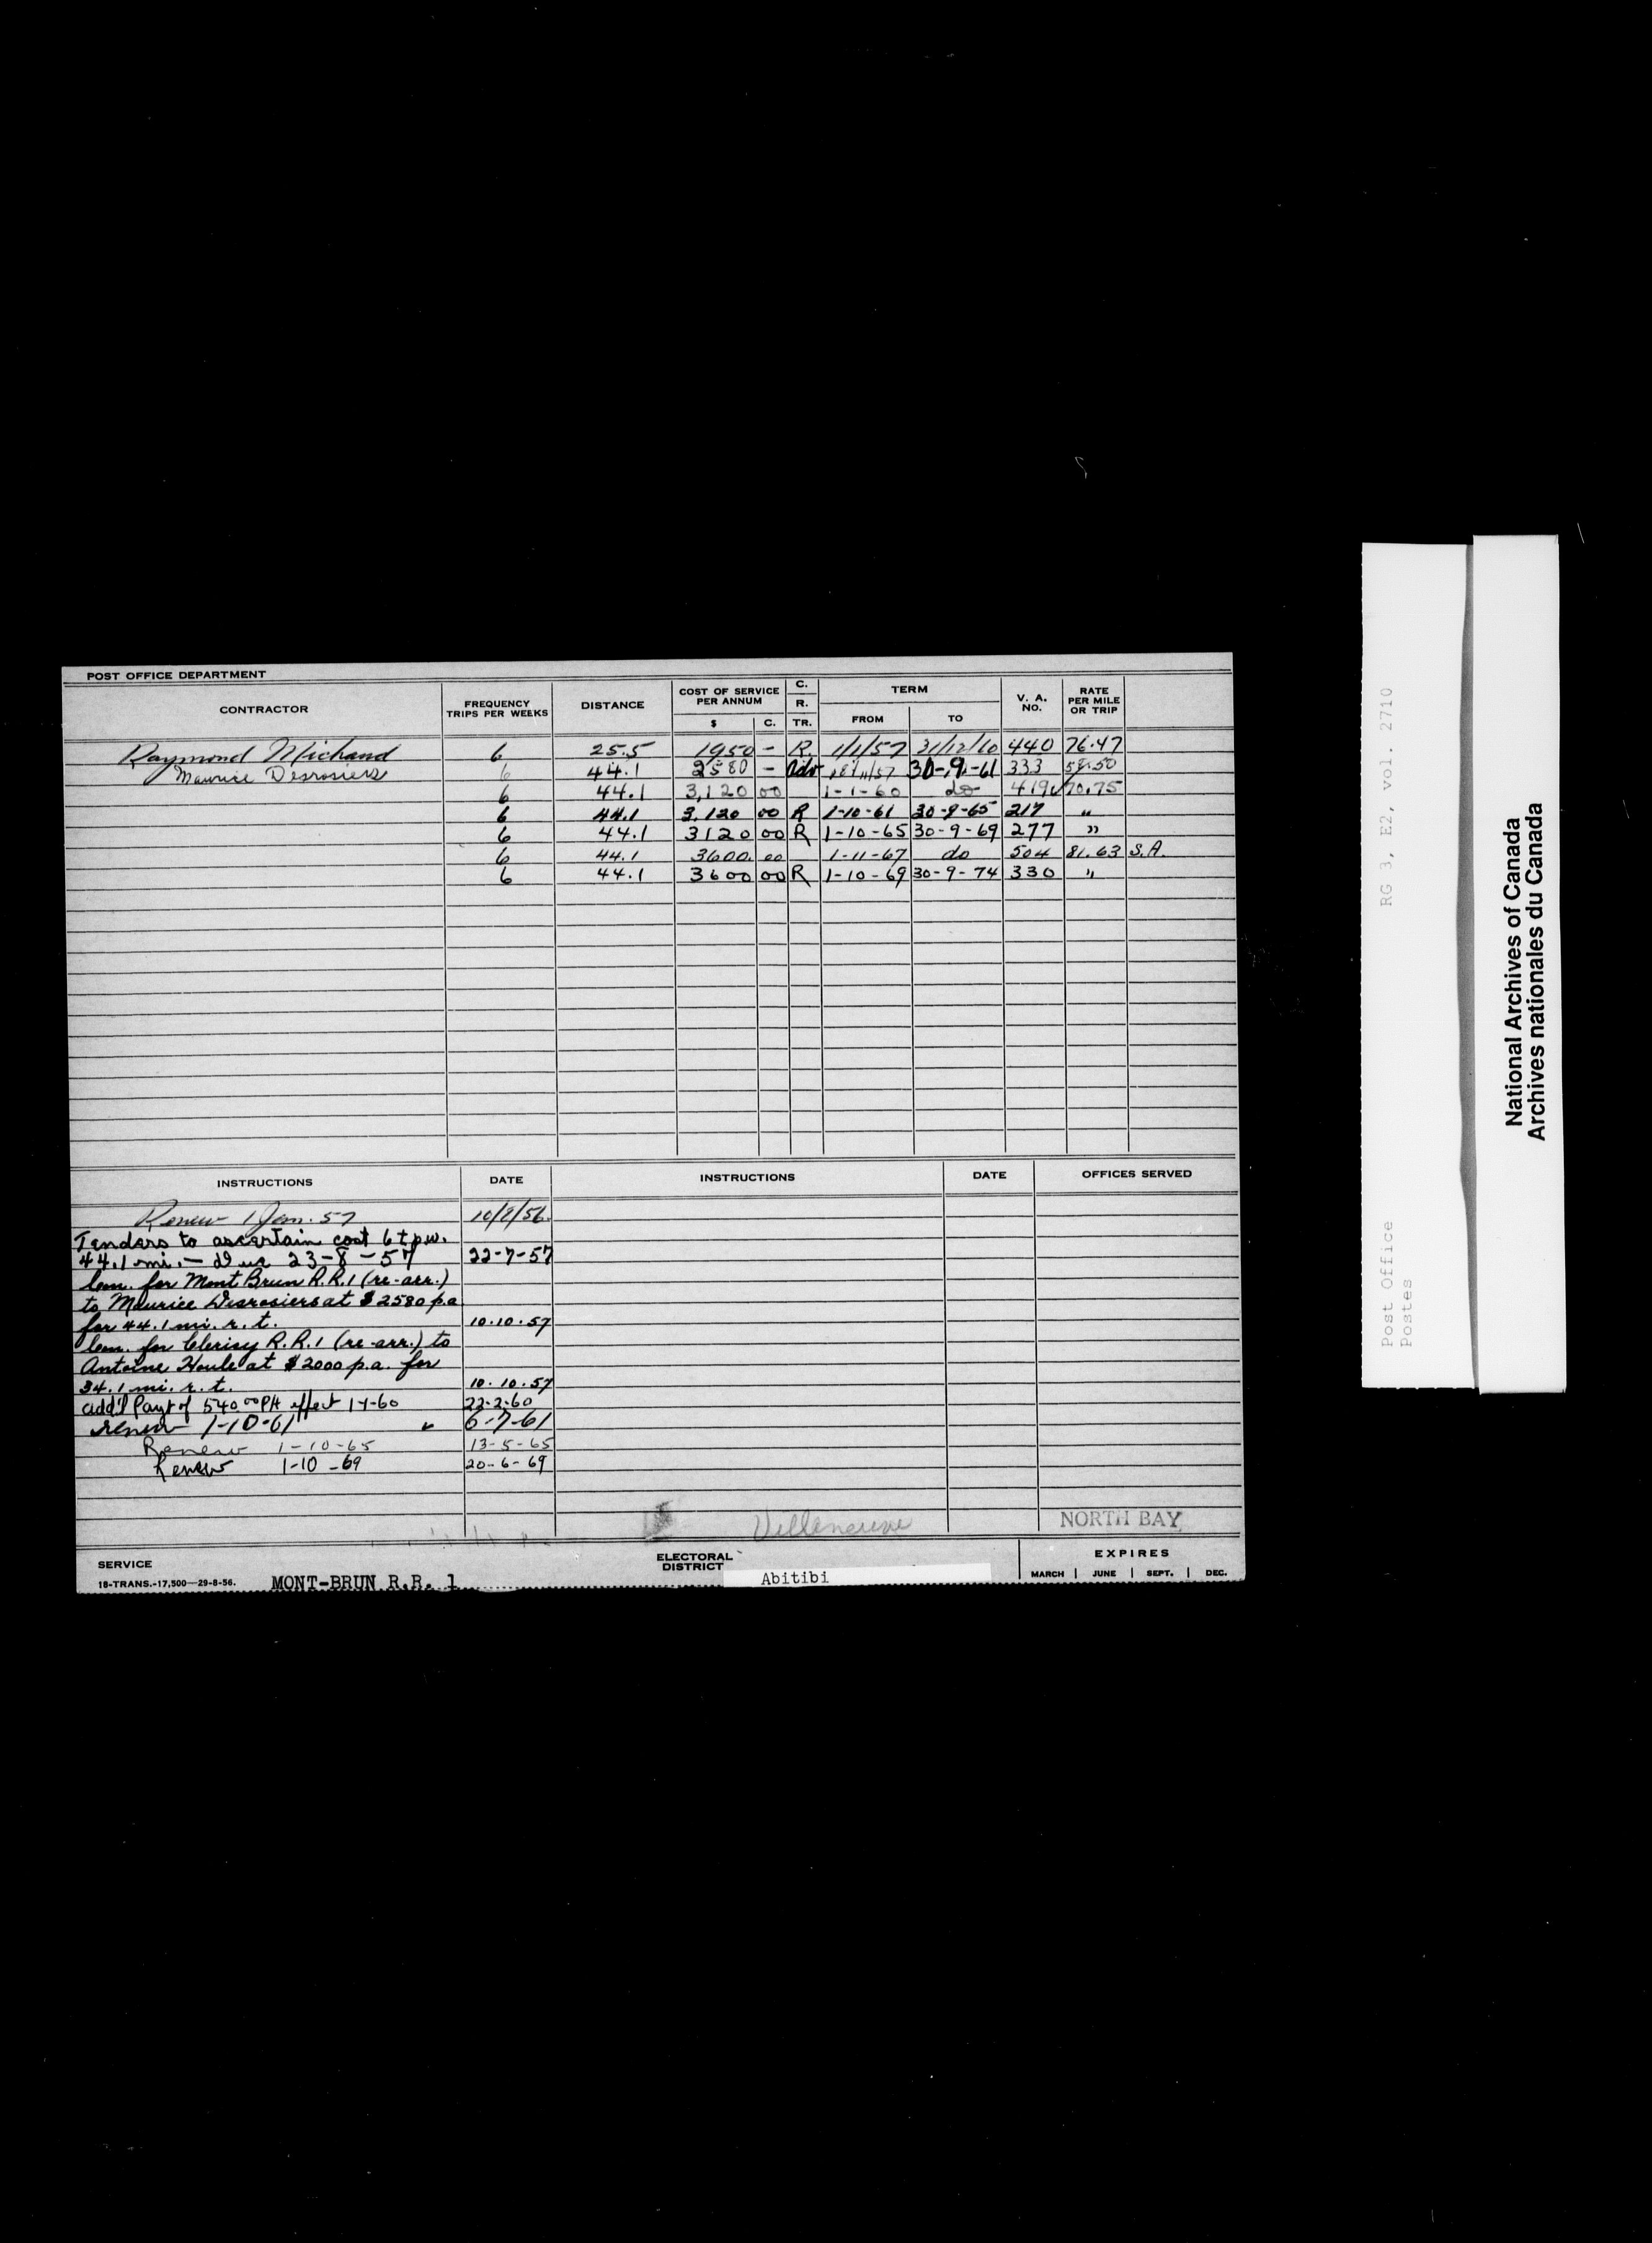 POST OFFICE DEPARTMENT
CONTRACTOR FREQUENCY TRIPS PER WEEKS DISTANCE COST OF SERVICE PER ANNUM $ C. C. R. TR. TERM FROM TO V. A. NO. RATE PER MILE OR TRIP
Raymond Michaud 6 25.5 1950 - R. 1/1/57 31/12/60 440 76.47
Maurice Desrosiers 6 44.1 2580 - Adv 30-9-61 333 58.50
6 44.1 3,120 00 1-1-60 do 419 70.75
6 44.1 3,120 00 R 1-10-61 30-9-65 217 "
6 44.1 3120 00 R 1-10-65 30-9-69 277 "
6 44.1 3600.00 1-11-67 do 504 81.63 S.A.
6 44.1 3600 00 R 1-10-69 30-9-74 330 "
INSTRUCTIONS DATE INSTRUCTIONS DATE OFFICES SERVED
Renew 1 Jan. 57 10/8/56
Tenders to ascertain cost 6 t.p.w.
44.1 mi. - Due 23-8-57 22-7-57
for Mont Brun R.R.1 (re-arr.)
to Maurice Desrosiers at $2580 p.a
for 44.1 mi. r.t. 10.10.57
for Clericy R.R.1 (re-arr.) to
Antoine Houle at $2000 p.a. for
34.1 mi. r.t. 10.10.57
add'l Payt of 540.00 PA effect 1-1-60 22-2-60
renew 1-10-61 " 6-7-61
Renew 1-10-65 13-5-65
Renew 1-10-69 20-6-69
Villeneuve
NORTH BAY
SERVICE MONT-BRUN R.R. 1
18-TRANS.-17,500—29-8-56.
ELECTORAL DISTRICT Abitibi
EXPIRES
MARCH | JUNE | SEPT. | DEC.
RG 3, E2, vol. 2710
Post Office
Postes
National Archives of Canada
Archives nationales du Canada